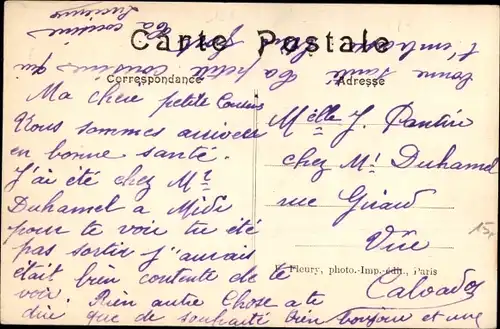 Carte Postale
Correspondance
Adresse
Ma chère petite Cousine
Nous sommes arrivées
en bonne santé.
J'ai été chez Mr
Duhamel a Midi
pour te voir tu été
pas sortir j'aurais
était bien contente de te
voir. Rien autre Chose a te
dire que de souhaité bien bonjour et une
bonne santé ta petite cousine qui
t'embrasse
ta cousine
Lucienne
Melle J.
chez Mr Duhamel
rue Girard
Vire
Calvados
Fleury, photo.-Imp.-édit., Paris